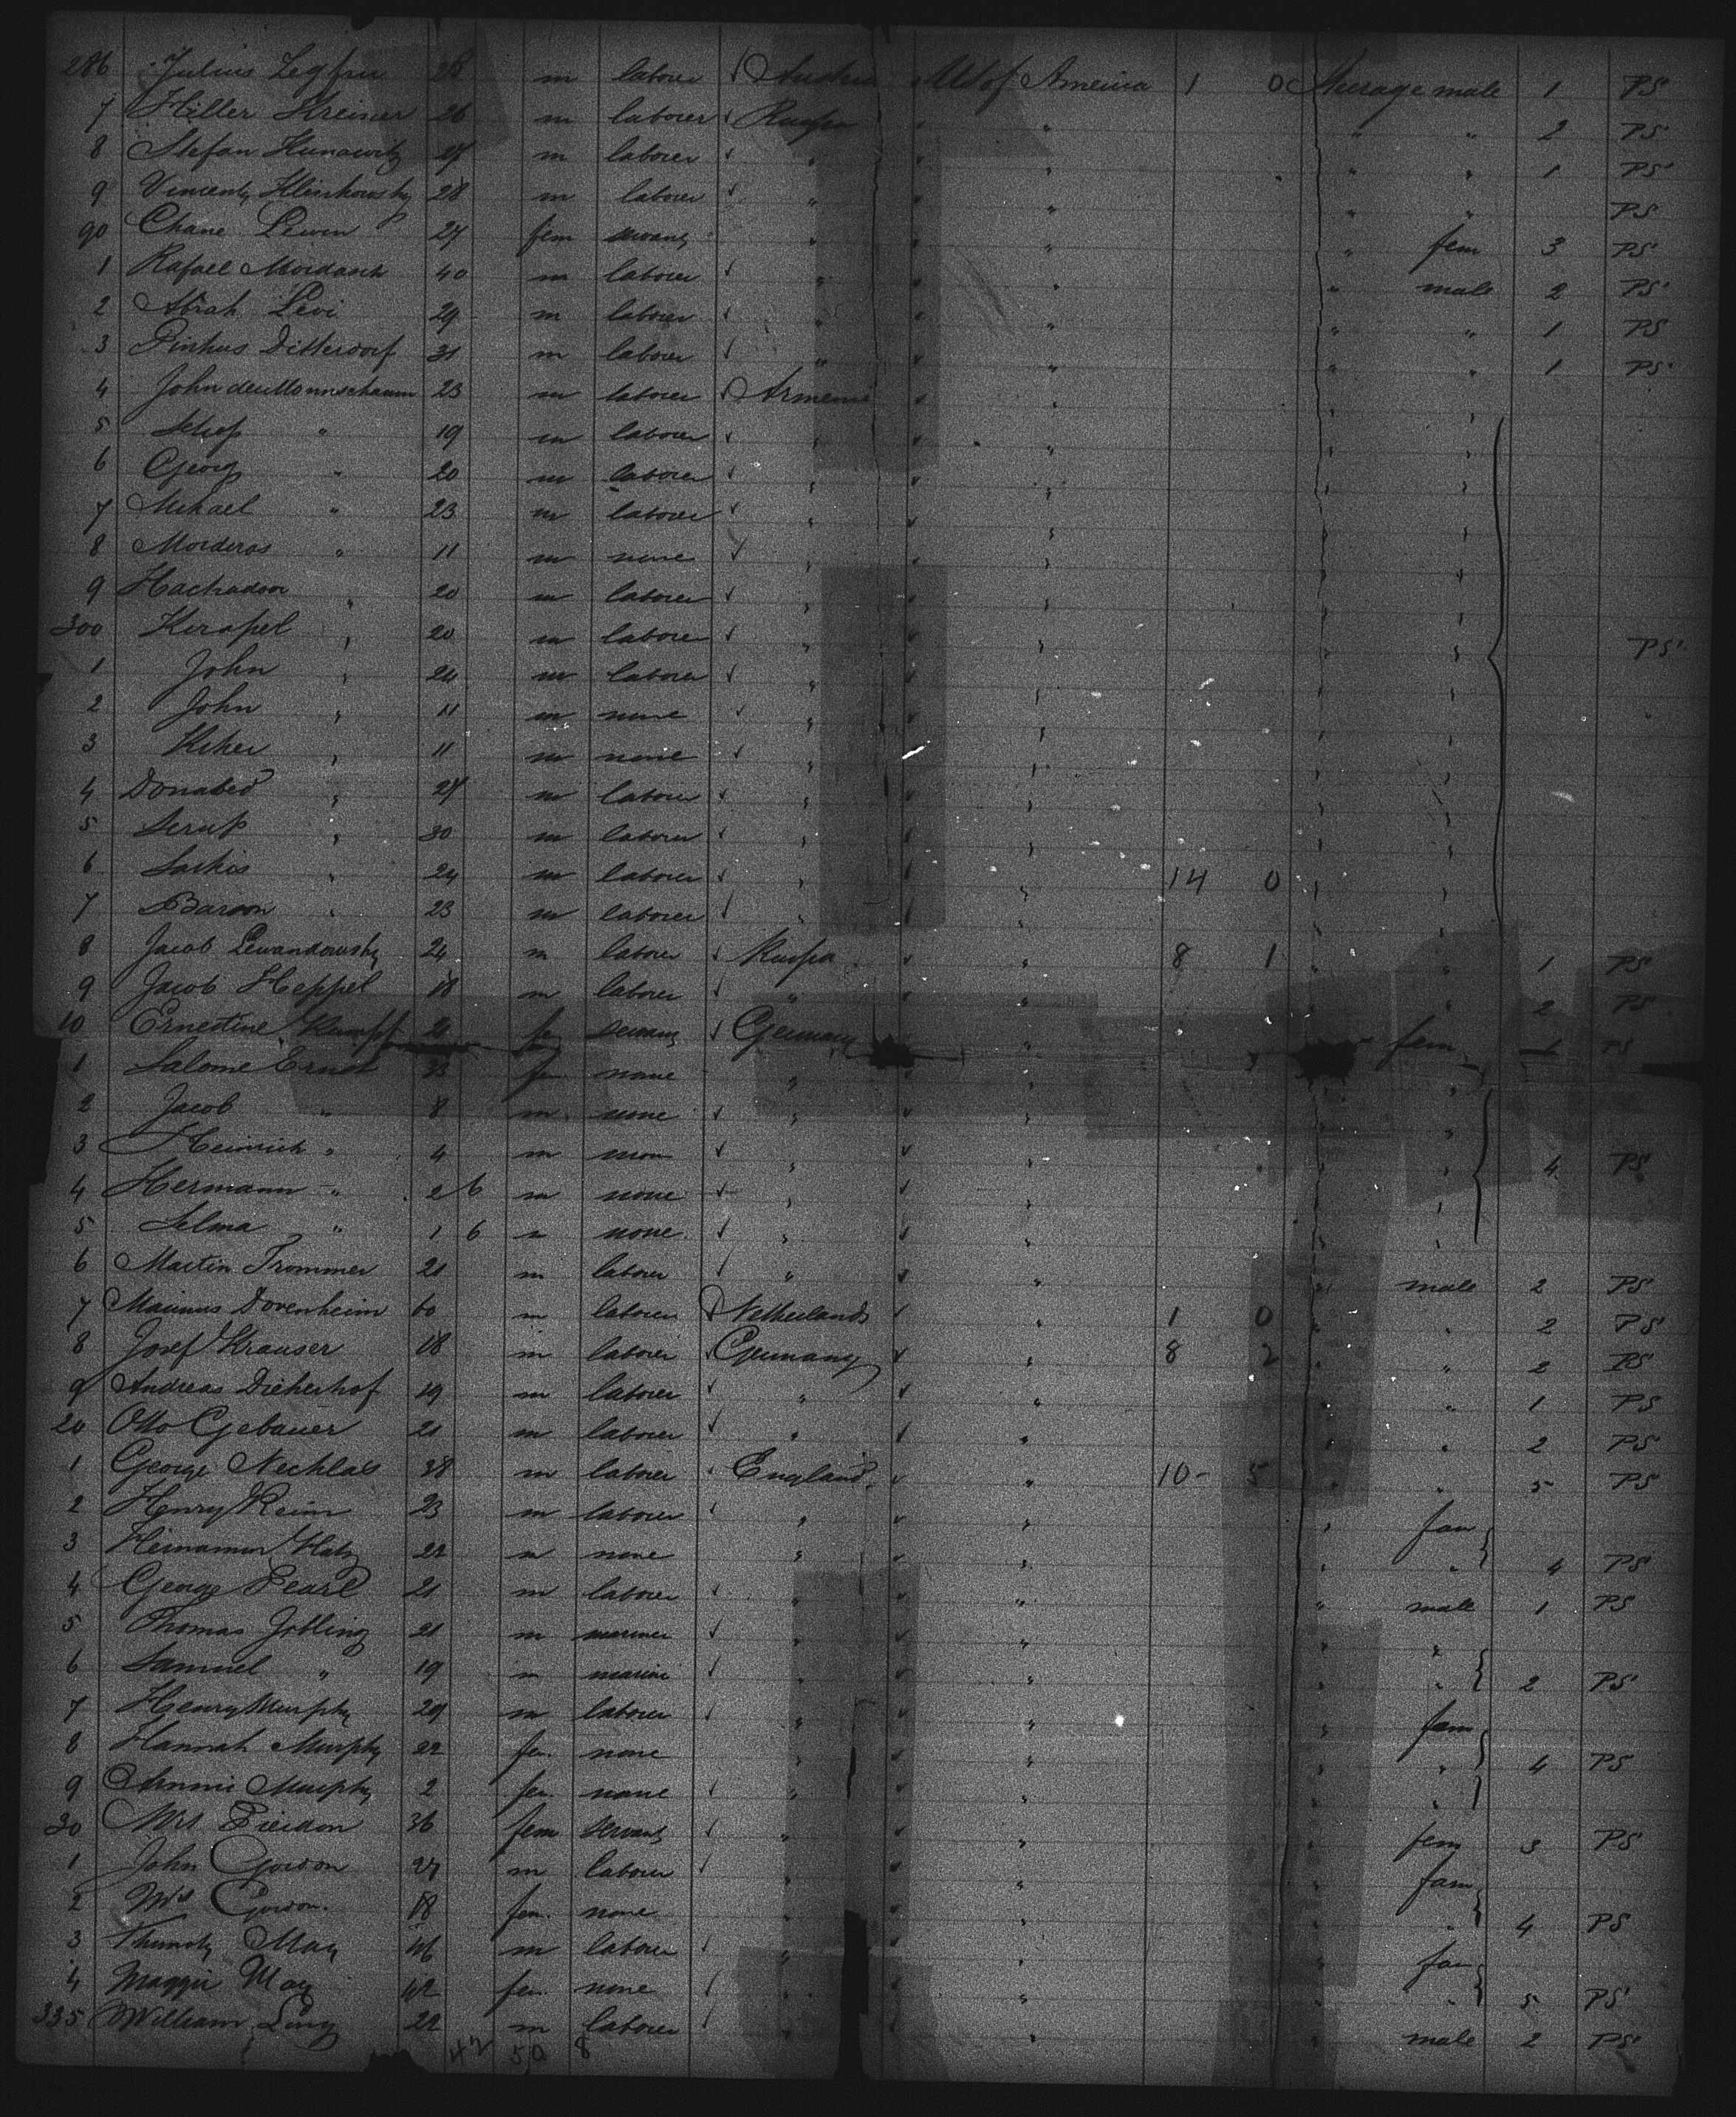 286 Julius Legfru 28 m laborer Austria U S of America 1 0 Steerage male 1 PS
7 Hiller Kreiner 26 m laborer Russia " " " 2 PS
8 Stefan Kunawitz 27 m laborer " " " " 1 PS
9 Vincenty Klinkowsky 28 m laborer " " " " PS
90 Chane Lewin 24 fem servant " " " fem 3 PS
1 Rafael Mordasch 40 m laborer " " " male 2 PS
2 Abrah Levi 29 m laborer " " " " 1 PS
3 Pinkus Ditterdorf 31 m laborer " " " " 1 PS
4 John 23 m laborer Armenia " " "
5 " 19 m laborer " " " "
6 Georg " 20 m laborer " " " "
7 Mikael " 23 m laborer " " " "
8 Morderos " 11 m none " " " "
9 Hachadoor " 20 m laborer " " " "
300 Kirapel " 20 m laborer " " " " PS
1 John " 24 m laborer " " " "
2 John " 11 m none " " " "
3 Kiker " 11 m none " " " "
4 Donabed " 27 m laborer " " " "
5 Serup " 30 m laborer " " " "
6 Sarkis " 24 m laborer " " 14 0 " "
7 Baroon " 23 m laborer " " " "
8 Jacob Lewandowsky 24 m laborer Russia " 8 1 " " 1 PS
9 Jacob Heppel 18 m laborer " " " " 2 PS
10 Ernestine Kumpf 21 fe servant Germany " " fem 1 PS
1 Salome Ernst 33 fe none " " " "
2 Jacob " 8 m none " " " "
3 Heinrich " 4 m non " " " " 4 PS
4 Hermann " 2 6 m none " " " "
5 Selma " 1 6 none " " " "
6 Martin Trommer 21 m laborer " " " male 2 PS
7 Marinus Dovenheim 60 m laborer Netherlands " 1 0 " " 2 PS
8 Josef Krauser 18 m laborer Germany " 8 2 " " 2 PS
9 Andreas Diekerhof 19 m laborer " " " " 1 PS
20 Otto Gebauer 21 m laborer " " " " 2 PS
1 George Nechlas 38 m laborer England " 10 - 5 " " 5 PS
2 Henry Keim 23 m laborer " " " fam
3 Katz 22 none " " " " 4 PS
4 George Pearl 21 m laborer " " " male 1 PS
5 Thomas Jobling 21 m mariner " " " "
6 Samuel " 19 m marine " " " " 2 PS
7 Henry Murphy 29 m laborer " " " fam
8 Hannah Murphy 22 fem. none " " " " 4 PS
9 Annie Murphy 2 fem. none " " " "
30 Mrs 36 fem servant " " " fem 3 PS
1 John Gordon 27 m laborer " " " fam
2 Mrs Gordon. 18 fem. none " " " " 4 PS
3 May 46 m laborer " " " fam
4 Maggie May 42 fem. none " " " " 5 PS
335 William Ling 22 m laborer " " " male 2 PS
42 50 8